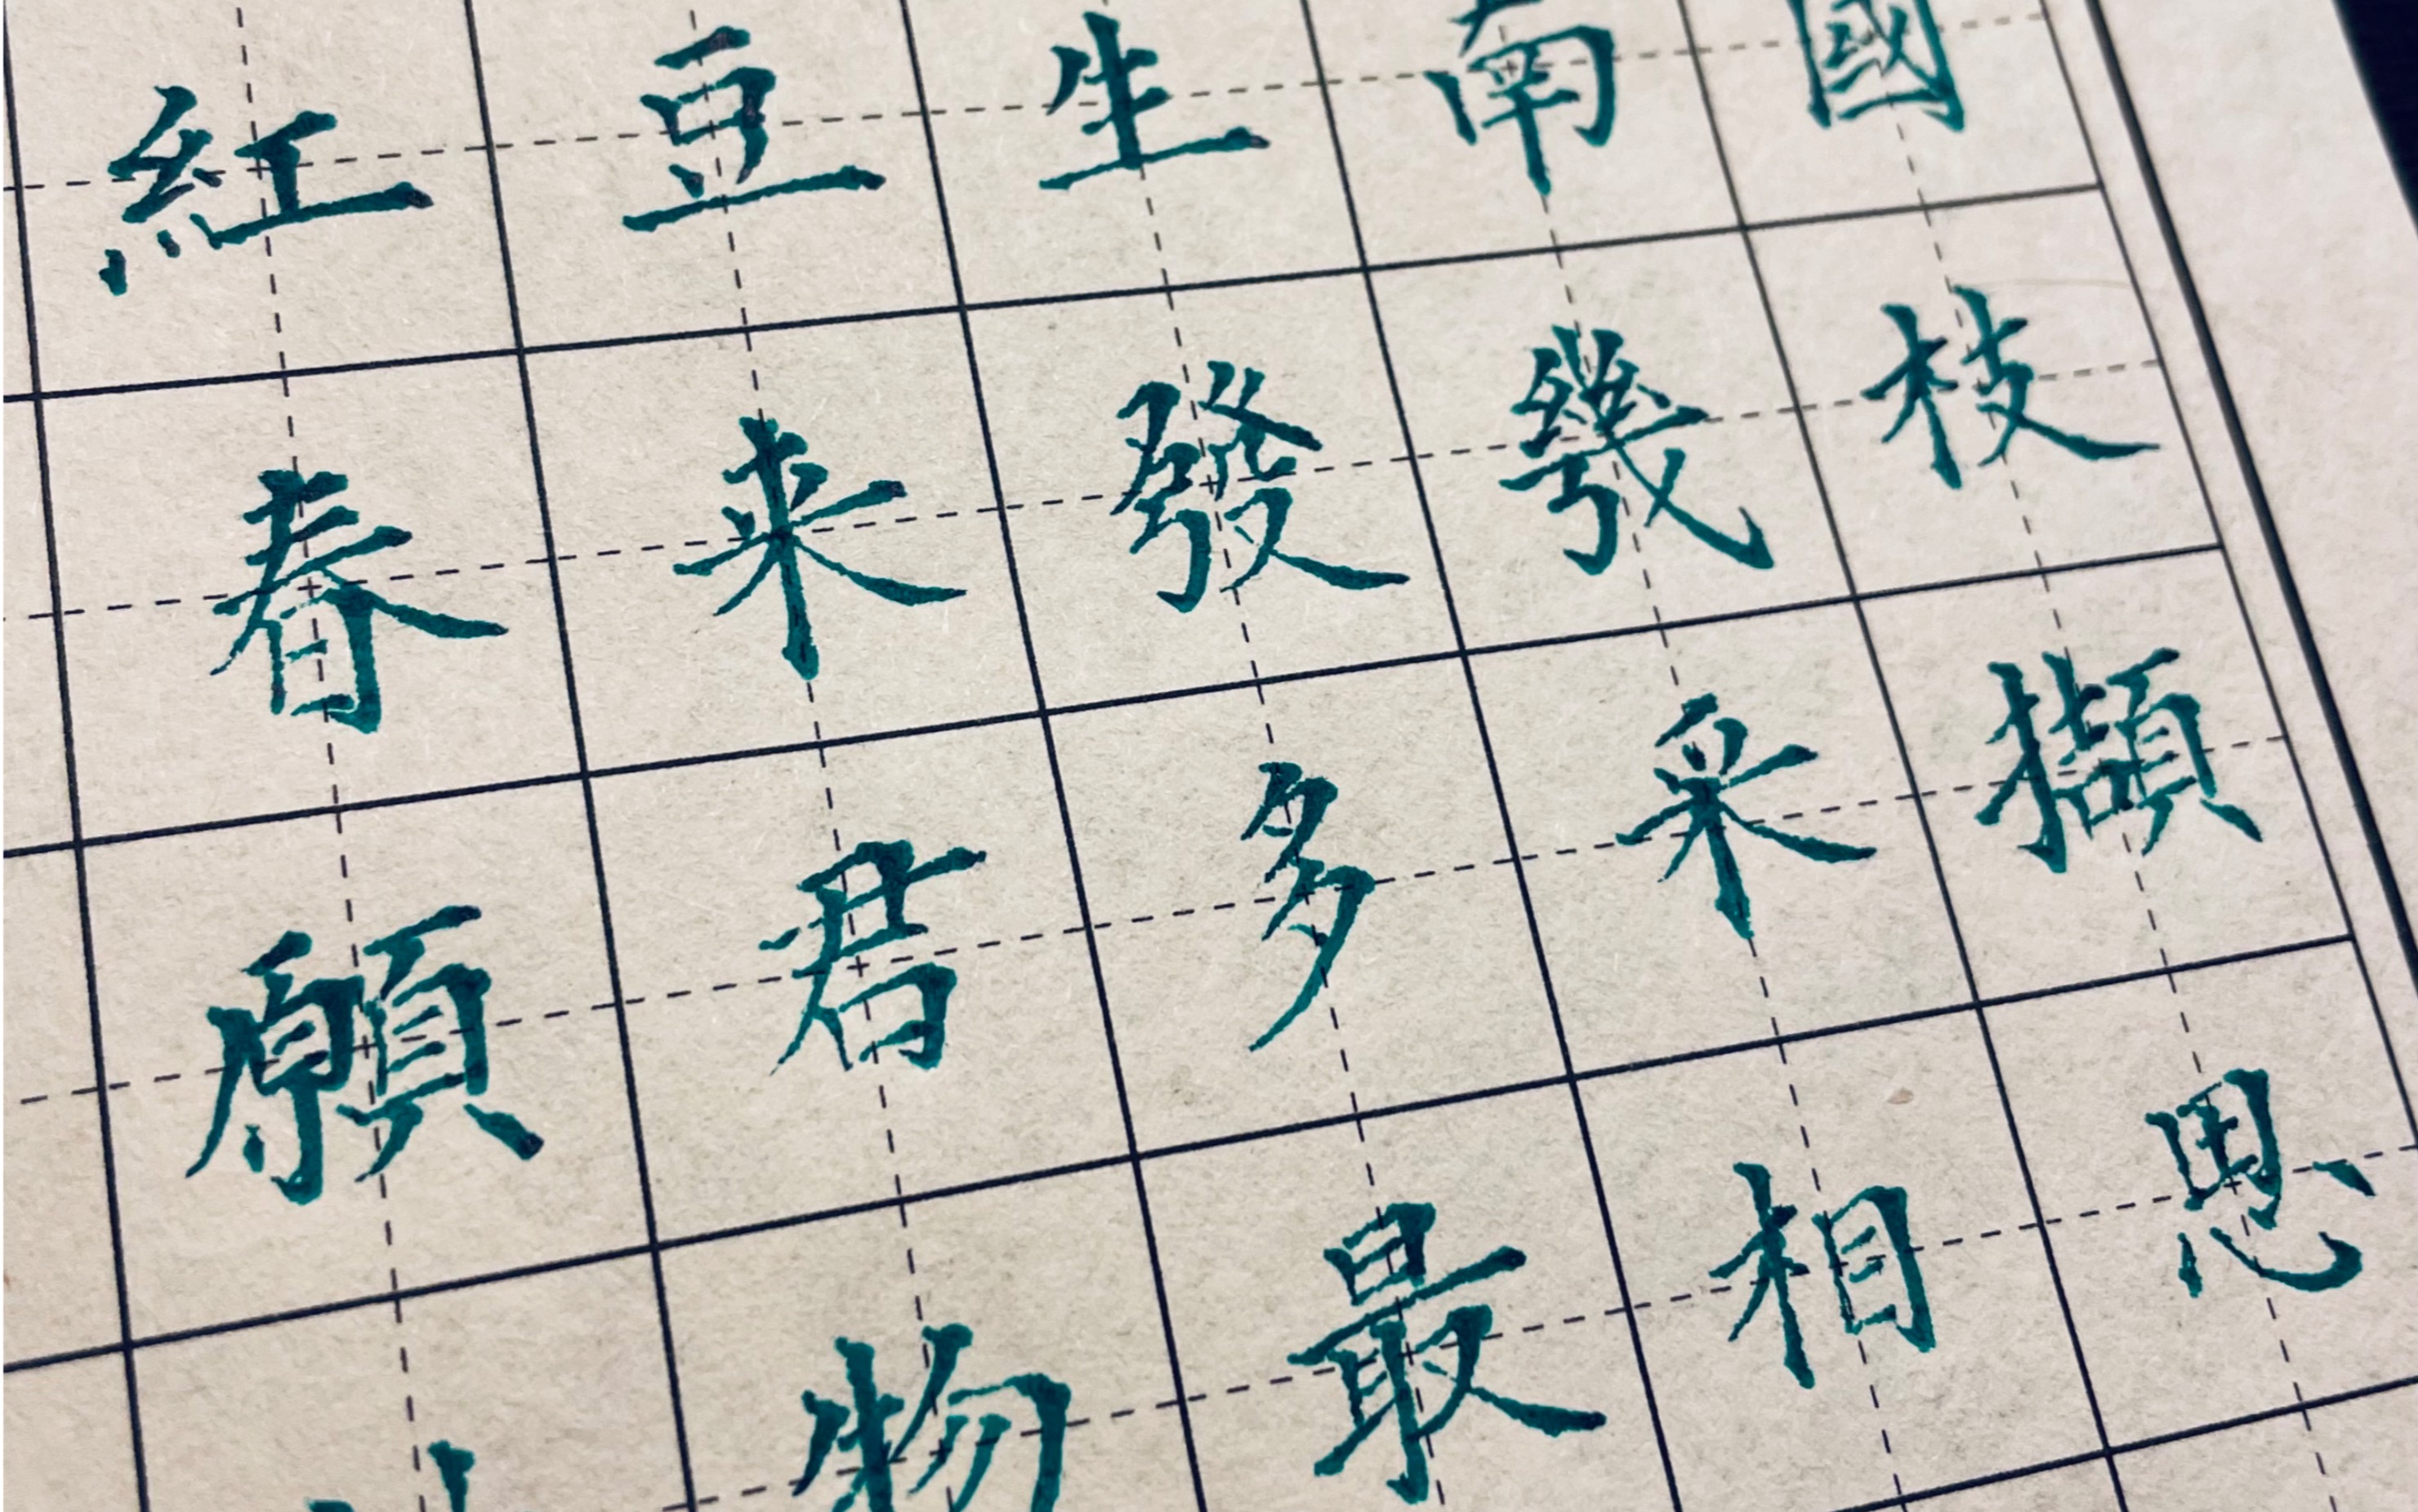 紅豆生南國
春来發幾枝
願君多采擷
物最相思